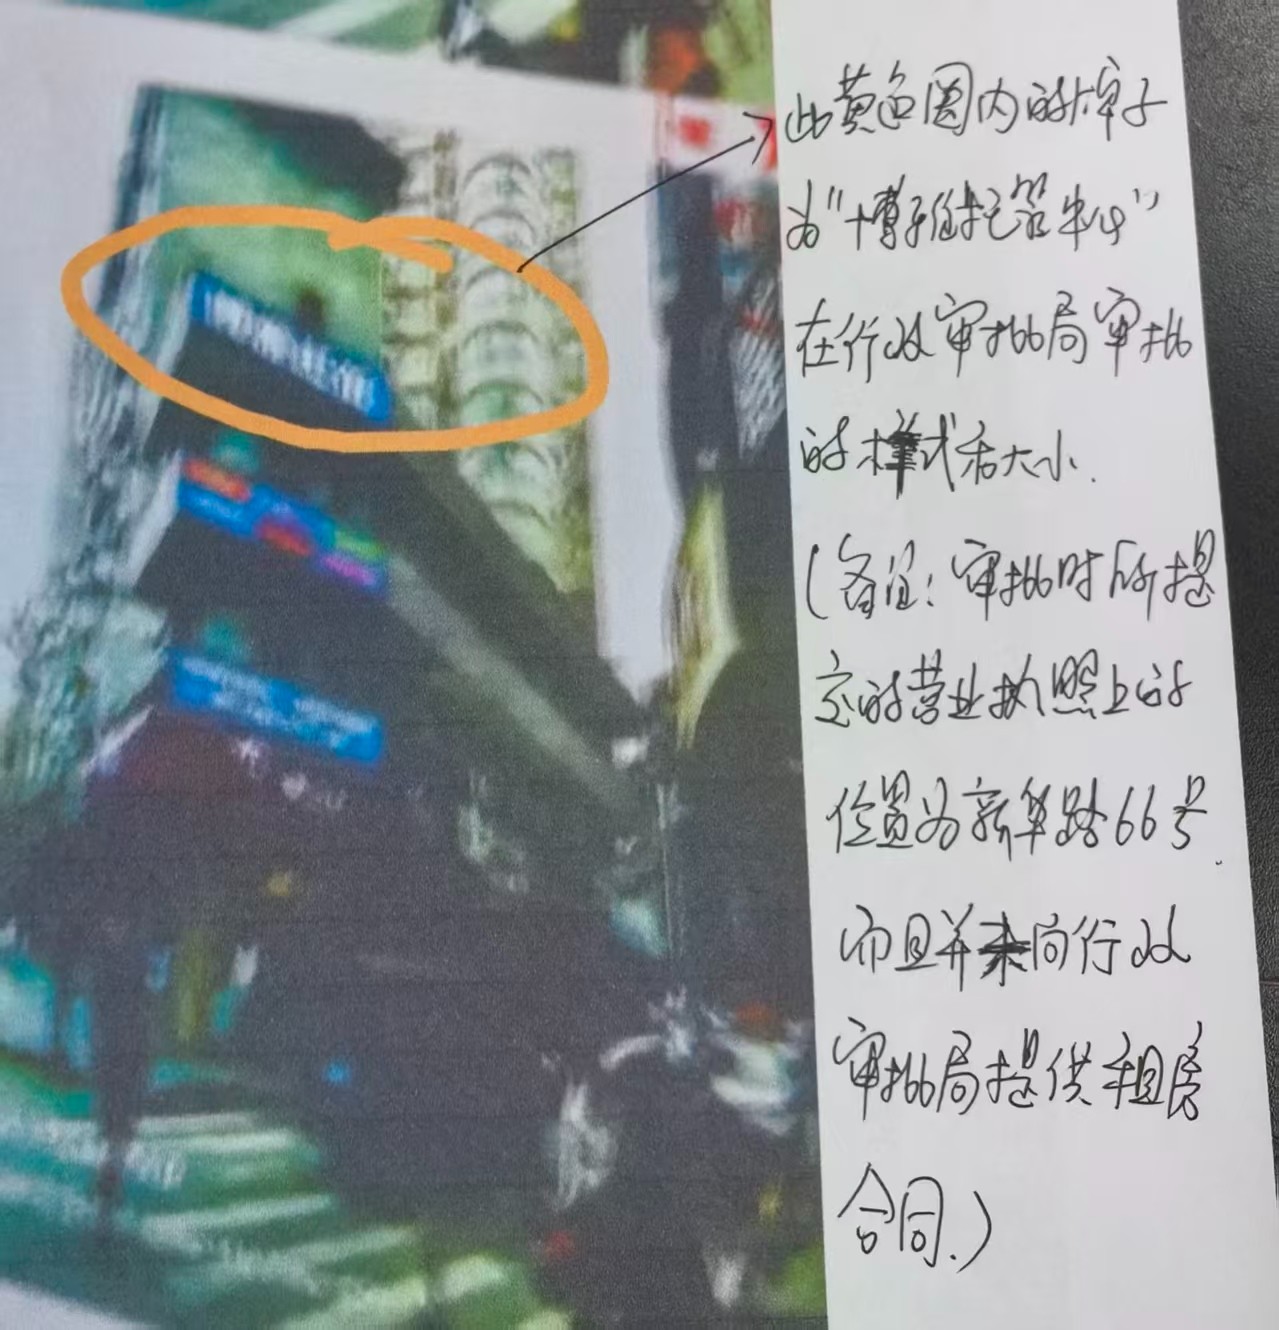 此黄色圈内的牌子
为“博雅托管中心”
在行政审批局审批
的样式和大小.
(备注：审批时所提
交的营业执照上的
位置为新华路66号.
而且并未向行政
审批局提供租房
合同.)